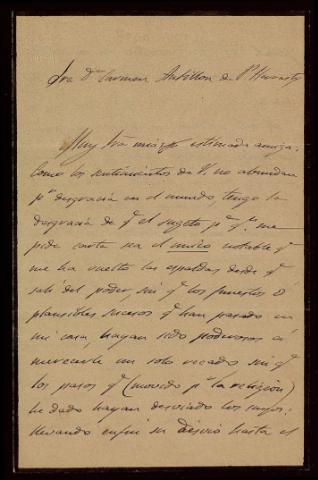 Sra Dª Carmen Antillon de
Muy Sra mia y estimada amiga:
Como los sentimientos de V. no abundan
pr desgracia en el mundo, tengo la
desgracia de q el sugeto pª qn me
pide carta sea el unico notable q
me ha vuelto las espaldas desde q
salí del poder, sin q los funestos ó
plausibles sucesos q han pasado en
mi casa, hayan sido poderosos á
merecerle un solo recado sin q
los pasos q (movido pr la religion)
he dado hayan desviado los suyos:
llevando en fin su desvio hasta el